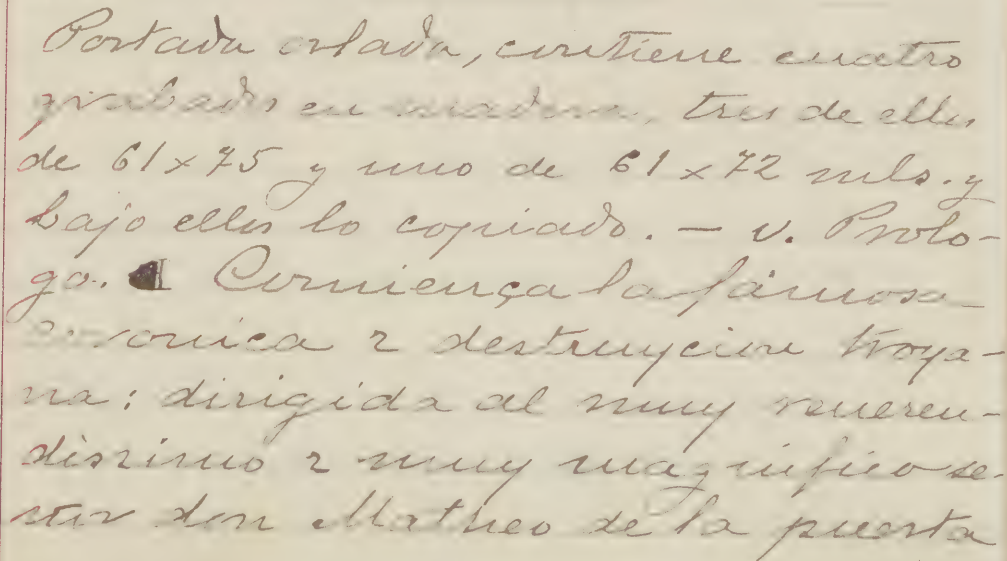 Portada orlada, contiene cuatro
grabados en madera, tres de ellos
de 61 x 75 y uno de 61 x 72 mls. y
bajo ellos lo copiado. — v. Prolo-
go. ¶ Comiença la famosa
coronica 2 destruycion troya-
na: dirigida al muy reueren-
dissimo 2 muy magnifico se-
ñor don Matheo de la puerta